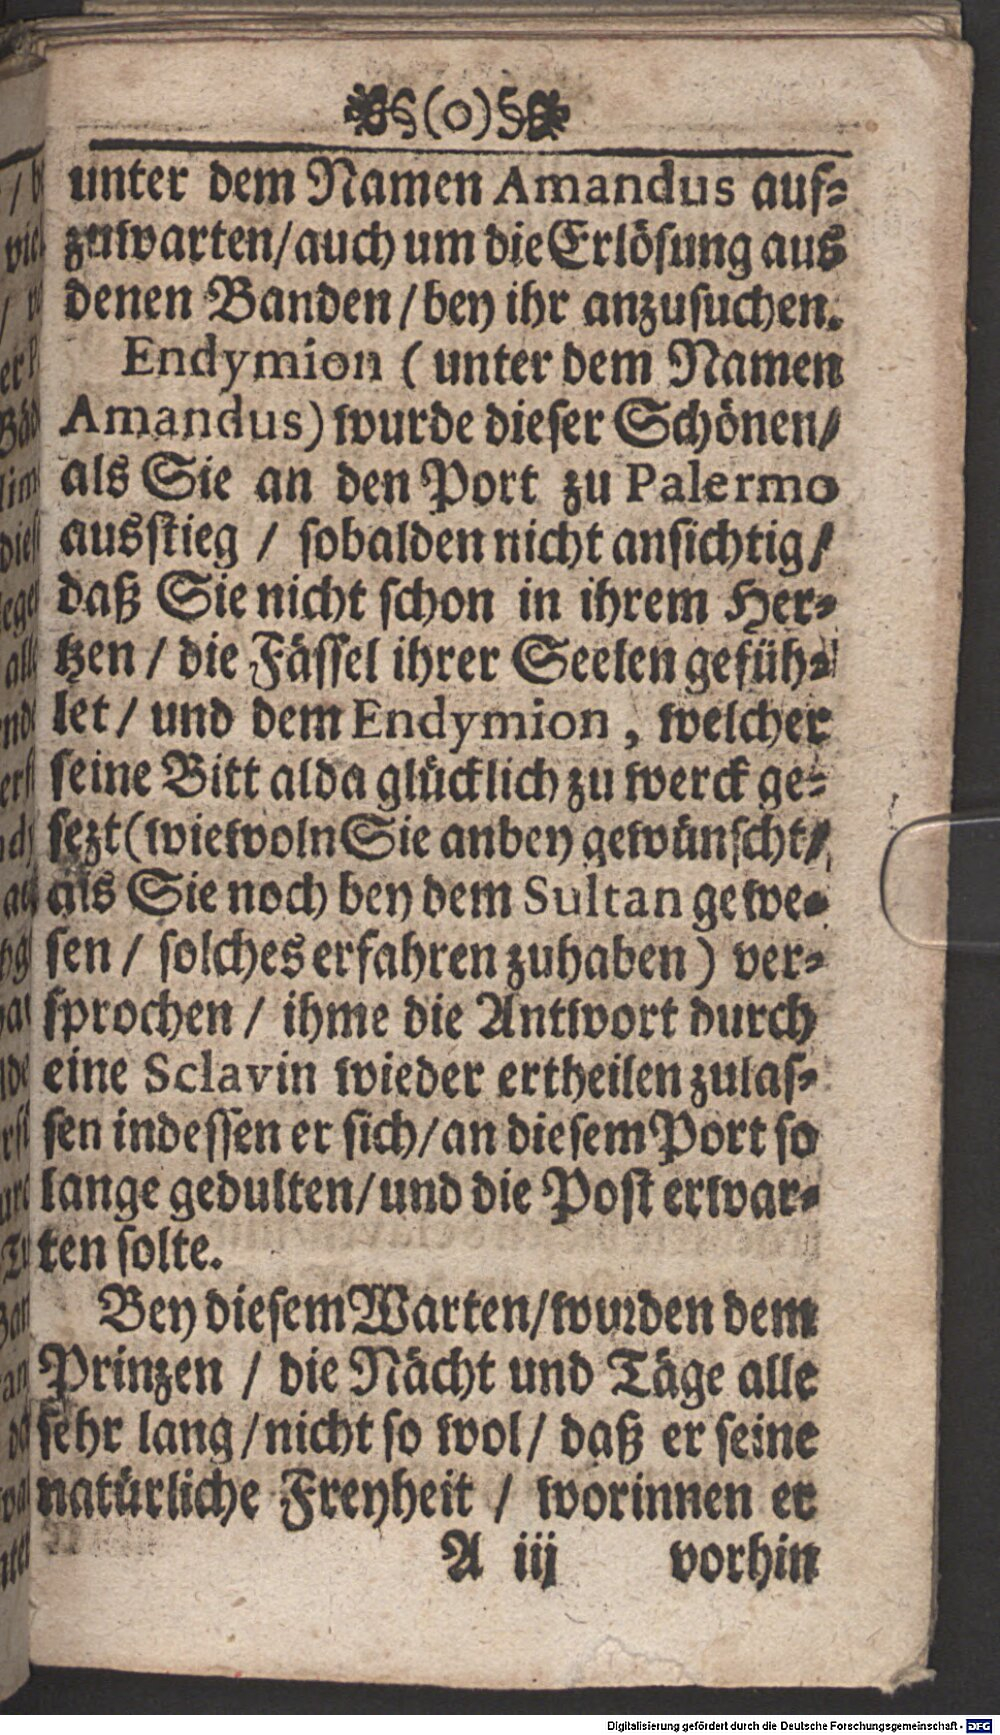 (o)
unter dem Namen Amandus auf⸗
zuwarten/auch um die Erlösung aus
denen Banden/bey ihr anzusuchen.
Endymion (unter dem Namen
Amandus) wurde dieser Schönen/
als Sie an den Port zu Palermo
ausstieg / sobalden nicht ansichtig/
daß Sie nicht schon in ihrem Her⸗
tzen / die Fässel ihrer Seelen gefüh⸗
let / und dem Endymion, welcher
seine Bitt alda glücklich zu werck ge⸗
sezt (wiewoln Sie anbey gewünscht/
als Sie noch bey dem Sultan gewe⸗
sen / solches erfahren zuhaben) ver⸗
sprochen / ihme die Antwort durch
eine Sclavin wieder ertheilen zulas⸗
sen indessen er sich/an diesem Port so
lange gedulten/und die Post erwar⸗
ten solte.
Bey diesem Warten/wurden dem
Prinzen / die Nächt und Täge alle
sehr lang/nicht so wol/ daß er seine
natürliche Freyheit / worinnen er
A iij vorhin
Digitalisierung gefördert durch die Deutsche Forschungsgemeinschaft - DFG